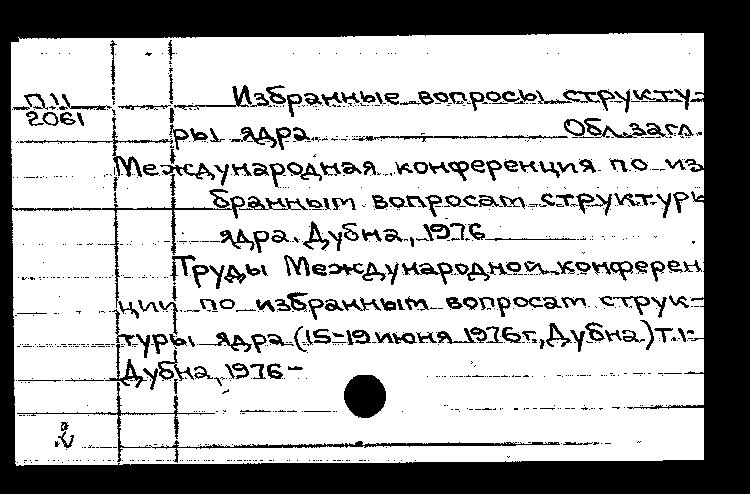 П11
2061
Избранные вопросы структу-
ры ядра Обл.загл.
Международная конференция по из
бранным вопросам структуры
ядра. Дубна, 1976
Труды Международной конферен
ции по избранным вопросам струк-
туры ядра (15-19 июня 1976г., Дубна) т.1-
Дубна, 1976 -